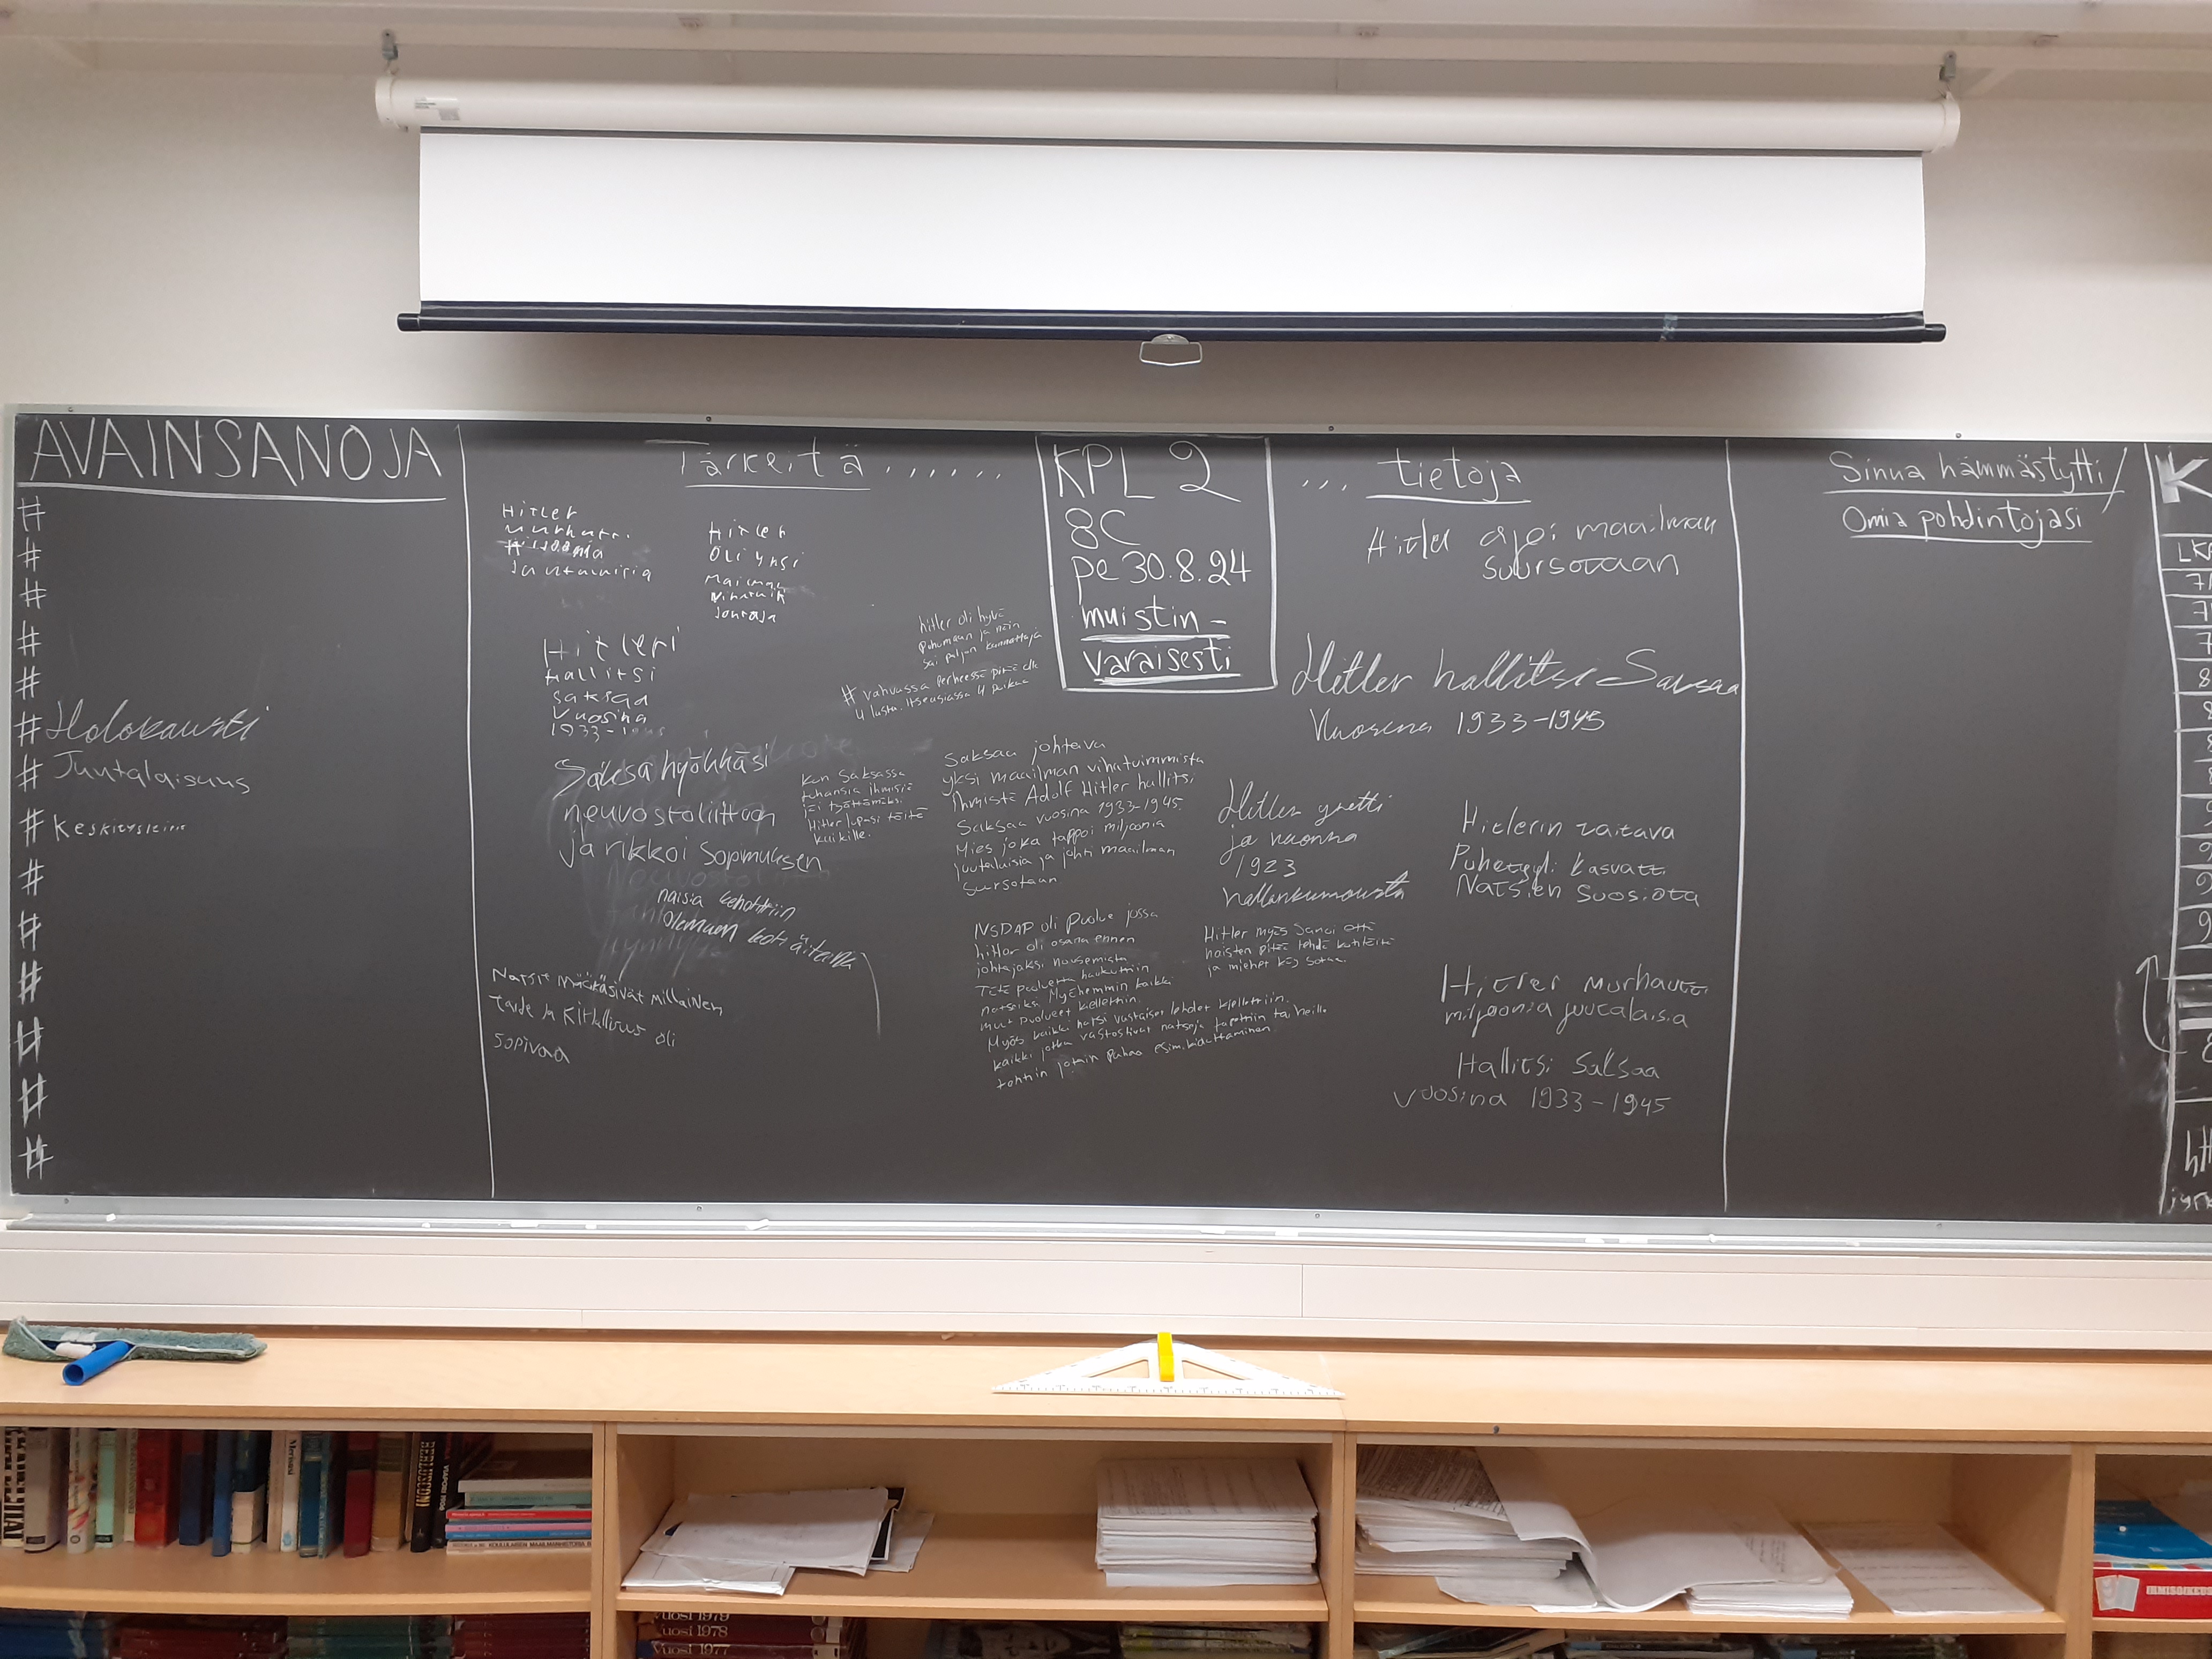 AVAINSANOJA
#
#
#
#
#
# Holokausti
# Juutalaisuus
# Keskitysleiri
#
#
#
#
#
#
Tärkeitä . . . . . .
Hitler
murhautti
miljoonia
Juutalaisia
Hitler
Oli yksi
Johtaja
Hitleri
hallitsi
saksaa
Vuosina
1933-
Saksa hyökkäsi
neuvostoliittoon
ja rikkoi sopmuksen
naisia kehottiin
Olemaan koti äiteinä
Natsit määräsivät millainen
taide ja kirjallisuus oli
sopivaa
hitler oli hyvä
Puhumaan ja näin
sai paljon kannattaja
# vahvassa perheessä pitää olla
4 lasta. itseasiassa 4 poikaa
Kun Saksassa
tuhansia ihmisiä
jäi työttömäksi
Hitler lupasi töitä
kaikille.
Saksaa johtava
yksi maailman vihatuimmista
ihmistä Adolf Hitler hallitsi
Saksaa vuosina 1933-1945
Mies joka tappoi miljoonia
juutalaisia ja johti maailman
suursotaan
NSDAP oli Puolue jossa
hitler oli osana ennen
johtajaksi nousemista
Tätä puoluetta haukuttiin
natseiksi Myöhemmin kaikki
muut puolueet kiellettiin.
Myös kaikki natsi vastaiset lehdet kiellettiin.
kaikki jotka vastostivat natseja tapettiin tai heille
tehtiin jotain pahaa esim. kiduttaminen
KPL 2
8C
pe 30.8.24
muistin-
varaisesti
... tietoja
Hitler ajoi maailman
suursotaan
Hitler hallitsi Saksaa
Vuosina 1933-1945
Hitler yritti
ja vuonna
1923
vallankumousta
Hitler myös Sanoi että
naisten pitää tehdä kotitöitä
ja miehet käy sotaa.
Hitlerin taitava
Puhetyyli kasvatti
Natsien suosiota
Hitler murhautti
miljoonia juutalaisia
Hallitsi Saksaa
vuosina 1933-1945
Sinua hämmästytti/
Omia pohdintojasi
K
Vuosi 1979
Vuosi 1978
Vuosi 1977